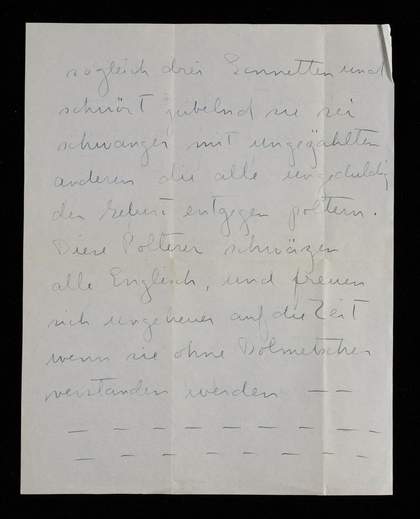 sogleich drei Sonnetten und
schwört jubelnd sie sei
schwanger mit ungezählten
anderen die alle ungeduldig
der Geburt entgegen poltern.
Diese Polterer schwäzen
alle Englisch, und freuen
sich ungeheuer auf die Zeit
wenn sie ohne Dolmetscher
verstanden werden — —
— — — — — — — — —
— — — — — — — —